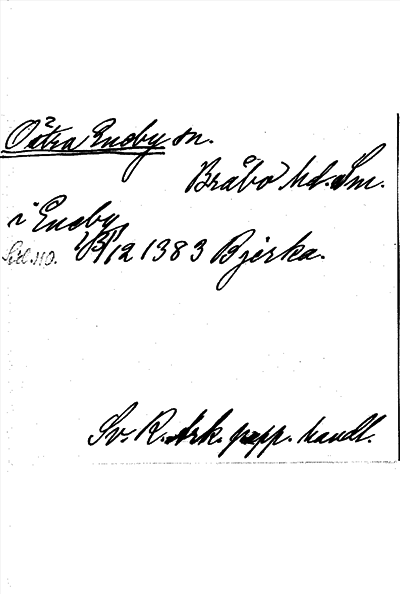 Östra Eneby sn.
Bråbo hd. Sm.
i Eneby
13/12 1383 Bjerka.
Sv. R. Ark. papp. handl.